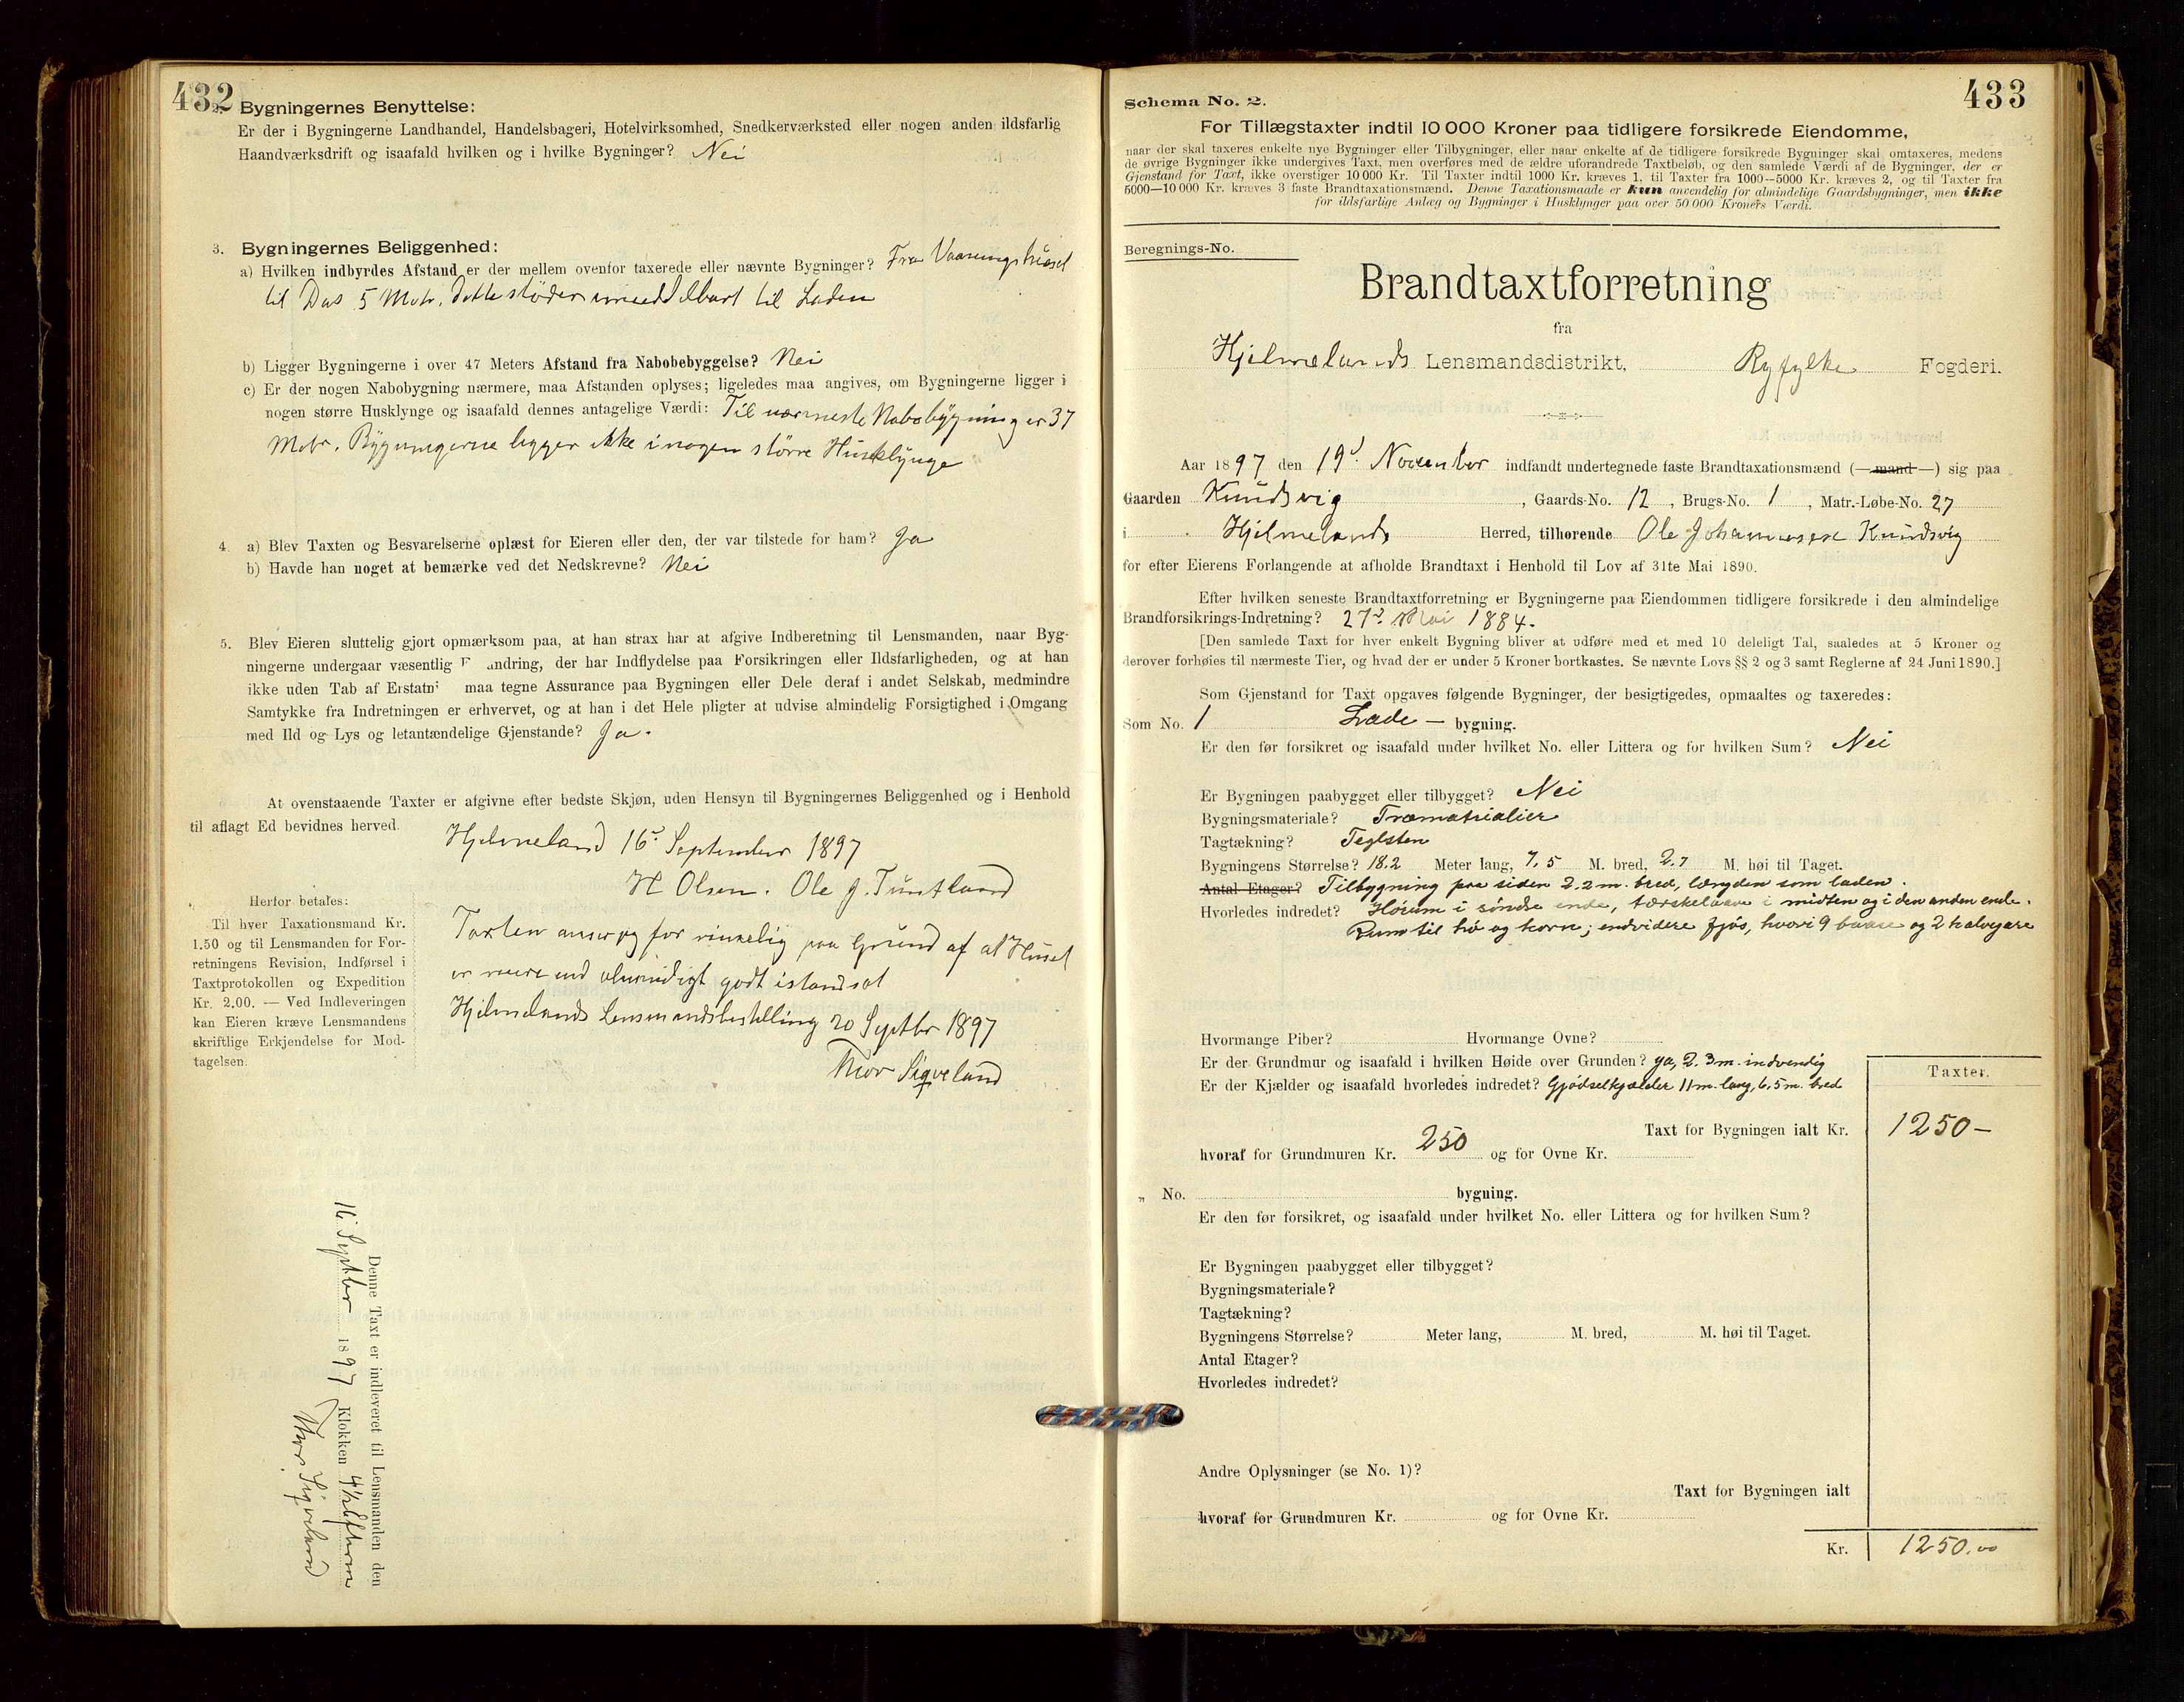 432
2. Bygningernes Benyttelse:
Er der i Bygningerne Landhandel, Handelsbageri, Hotelvirksomhed, Snedkerværksted eller nogen anden ildsfarlig
Haandværksdrift og isaafald hvilken og i hvilke Bygninger? Nei
3. Bygningernes Beliggenhed:
a) Hvilken indbyrdes Afstand er der mellem ovenfor taxerede eller nævnte Bygninger? Fra Vaaningshuset
til Das 5 Metr. dette støder umiddelbart til Laden
b) Ligger Bygningerne i over 47 Meters Afstand fra Nabobebyggelse? Nei
c) Er der nogen Nabobygning nærmere, maa Afstanden oplyses; ligeledes maa angives, om Bygningerne ligger i
nogen større Husklynge og isaafald dennes antagelige Værdi: Til nærmeste Nabobygning er 37
Metr. Bygningerne ligger ikke i nogen större Husklynge
4. a) Blev Taxten og Besvarelserne oplæst for Eieren eller den, der var tilstede for ham? Ja
b) Havde han noget at bemærke ved det Nedskrevne? Nei
5. Blev Eieren sluttelig gjort opmærksom paa, at han strax har at afgive Indberetning til Lensmanden, naar Byg-
ningerne undergaar væsentlig F andring, der har Indflydelse paa Forsikringen eller Ildsfarligheden, og at han
ikke uden Tab af Erstatni maa tegne Assurance paa Bygningen eller Dele deraf i andet Selskab, medmindre
Samtykke fra Indretningen er erhvervet, og at han i det Hele pligter at udvise almindelig Forsigtighed i Omgang
med Ild og Lys og letantændelige Gjenstande? Ja.
At ovenstaaende Taxter er afgivne efter bedste Skjøn, uden Hensyn til Bygningernes Beliggenhed og i Henhold
til aflagt Ed bevidnes herved.
Hjelmeland 16d September 1897
H Olsen. Ole J. Tuntland
Herfor betales:
Til hver Taxationsmand Kr.
1.50 og til Lensmanden for For-
retningens Revision, Indførsel i
Taxtprotokollen og Expedition
Kr. 2.00. — Ved Indleveringen
kan Eieren kræve Lensmandens
skriftlige Erkjendelse for Mod-
tagelsen.
Taxten anser jeg for rimelig paa Grund af at Huset
er mere end almindigt godt istandsat
Hjelmelands Lensmandsbestilling 20 Septbr 1897
Thor Sigveland
Denne Taxt er indleveret til Lensmanden den
16 Septbr 1897 Klokken 4 1/2 Efterm
Thor Sigveland
433
Schema No. 2.
For Tillægstaxter indtil 10 000 Kroner paa tidligere forsikrede Eiendomme,
naar der skal taxeres enkelte nye Bygninger eller Tilbygninger, eller naar enkelte af de tidligere forsikrede Bygninger skal omtaxeres, medens
de øvrige Bygninger ikke undergives Taxt, men overføres med de ældre uforandrede Taxtbeløb, og den samlede Værdi af de Bygninger, der er
Gjenstand for Taxt, ikke overstiger 10 000 Kr. Til Taxter indtil 1000 Kr. kræves 1, til Taxter fra 1000—5000 Kr. kræves 2, og til Taxter fra
5000—10 000 Kr. kræves 3 faste Brandtaxationsmænd. Denne Taxationsmaade er kun anvendelig for almindelige Gaardsbygninger, men ikke
for ildsfarlige Anlæg og Bygninger i Husklynger paa over 50 000 Kroners Værdi.
Beregnings-No.
Brandtaxtforretning
fra
Hjelmelands Lensmandsdistrikt, Ryfylke Fogderi.
Aar 1897 den 19d November indfandt undertegnede faste Brandtaxationsmænd (—mand—) sig paa
Gaarden Knudsvig, Gaards-No. 12, Brugs-No. 1, Matr.-Løbe-No. 27
i Hjelmelands Herred, tilhørende Ole Johannesen Knudsvig
for efter Eierens Forlangende at afholde Brandtaxt i Henhold til Lov af 31te Mai 1890.
Efter hvilken seneste Brandtaxtforretning er Bygningerne paa Eiendommen tidligere forsikrede i den almindelige
Brandforsikrings-Indretning? 27d Mai 1884.
[Den samlede Taxt for hver enkelt Bygning bliver at udføre med et med 10 deleligt Tal, saaledes at 5 Kroner og
derover forhøies til nærmeste Tier, og hvad der er under 5 Kroner bortkastes. Se nævnte Lovs §§ 2 og 3 samt Reglerne af 24 Juni 1890.]
Som Gjenstand for Taxt opgaves følgende Bygninger, der besigtigedes, opmaaltes og taxeredes:
Som No. 1 Lade — bygning.
Er den før forsikret og isaafald under hvilket No. eller Littera og for hvilken Sum? Nei
Er Bygningen paabygget eller tilbygget? Nei
Bygningsmateriale? Træmatrialier
Tagtækning? Teglsten
Bygningens Størrelse? 18.2 Meter lang, 7.5 M. bred, 2.7 M. høi til Taget.
Antal Etager? Tilbygning paa siden 2.2 m. bred, længden som laden.
Hvorledes indredet? Hörum i söndre ende, tærskelaave i midten og i den anden ende.
Rum til hö og korn; endvidere fjös, hvori 9 baase og 2 kalvegare
Hvormange Piber? Hvormange Ovne?
Er der Grundmur og isaafald i hvilken Høide over Grunden? ja, 2.3 m. indvendig
Er der Kjælder og isaafald hvorledes indredet? Gjödselkjælder 11 m. lang, 6,5 m. bred
Taxter.
Taxt for Bygningen ialt Kr. 1250—
hvoraf for Grundmuren Kr. 250 og for Ovne Kr.
„ No. bygning.
Er den før forsikret, og isaafald under hvilket No. eller Littera og for hvilken Sum?
Er Bygningen paabygget eller tilbygget?
Bygningsmateriale?
Tagtækning?
Bygningens Størrelse? Meter lang, M. bred, M. høi til Taget.
Antal Etager?
Hvorledes indredet?
Andre Oplysninger (se No. 1)?
Taxt for Bygningen ialt
hvoraf for Grundmuren Kr. og for Ovne Kr.
Kr. 1250.00